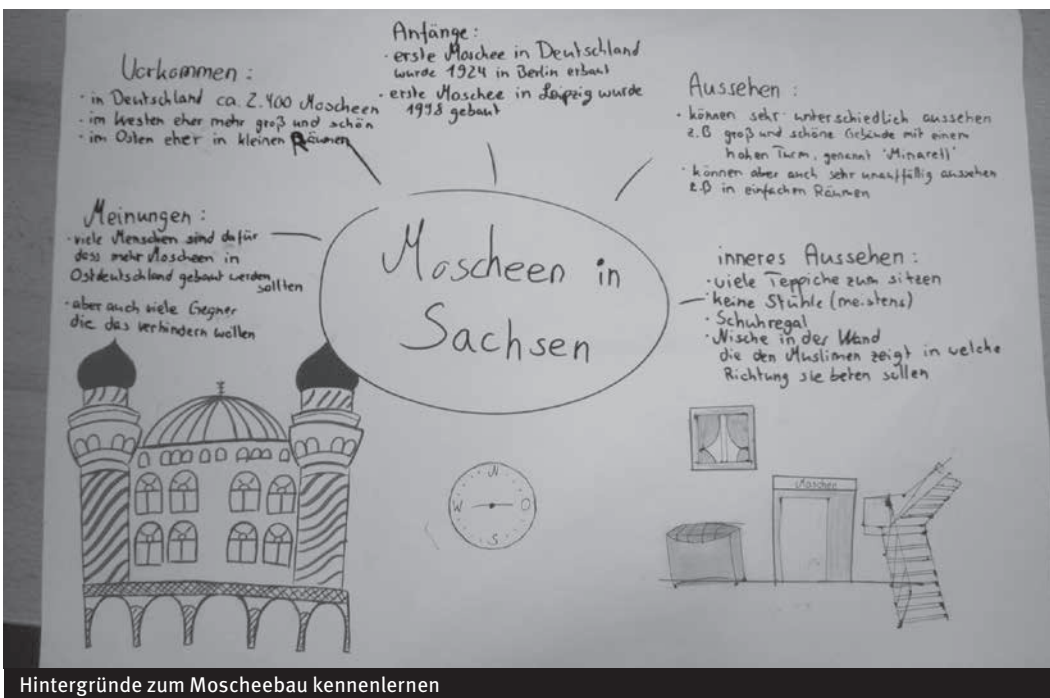 Vorkommen :
· in Deutschland ca. 2.400 Moscheen
· im Westen eher mehr groß und schön
· im Osten eher in kleinen Räumen
Anfänge :
· erste Moschee in Deutschland
wurde 1924 in Berlin erbaut
· erste Moschee in Leipzig wurde
1998 gebaut
Aussehen :
· können sehr unterschiedlich aussehen
z.B groß und schöne Gebäude mit einem
hohen Turm, genannt "Minarett"
· können aber auch sehr unauffällig aussehen
z.B in einfachen Räumen
Meinungen :
· viele Menschen sind dafür
dass mehr Moscheen in
Ostdeutschland gebaut werden
sollten
· aber auch viele Gegner
die das verhindern wollen
Moscheen in
Sachsen
inneres Aussehen :
· viele Teppiche zum sitzen
· keine Stühle (meistens)
· Schuhregal
· Nische in der Wand
die den Muslimen zeigt in welche
Richtung sie beten sollen
N
W O
S
Moschee
Hintergründe zum Moscheebau kennenlernen